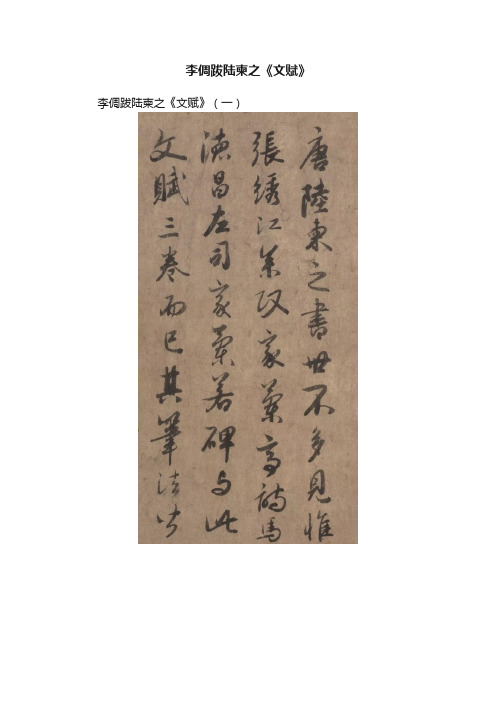 李倜跋陆柬之《文赋》
李倜跋陆柬之《文赋》(一)
唐陸柬之書世不多見惟
張綉江參政家蘭亭詩馬
德昌左司家蘭若碑与此
文賦三卷而已其筆法皆